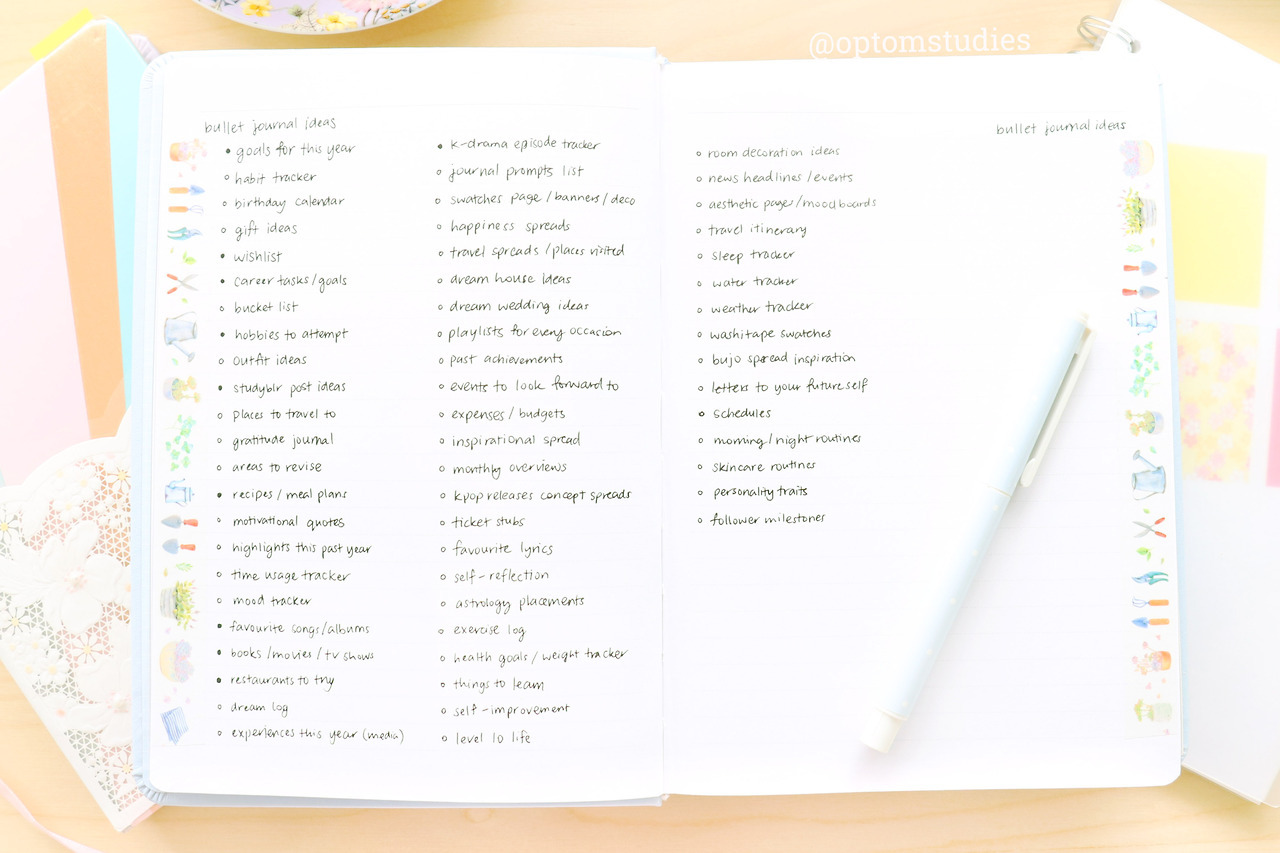 @optomstudies
bullet journal ideas
• goals for this year
◦ habit tracker
◦ birthday calendar
◦ gift ideas
• wishlist
• career tasks/goals
◦ bucket list
• hobbies to attempt
◦ outfit ideas
• studyblr post ideas
◦ places to travel to
◦ gratitude journal
◦ areas to revise
• recipes / meal plans
◦ motivational quotes
◦ highlights this past year
◦ time usage tracker
◦ mood tracker
• favourite songs/albums
• books /movies / tv shows
• restaurants to try
◦ dream log
◦ experiences this year (media)
• k-drama episode tracker
◦ journal prompts list
◦ swatches page / banners / deco
◦ happiness spreads
◦ travel spreads / places visited
◦ dream house ideas
◦ dream wedding ideas
◦ playlists for every occasion
◦ past achievements
◦ events to look forward to
◦ expenses / budgets
◦ inspirational spread
◦ monthly overviews
◦ kpop releases concept spreads
◦ ticket stubs
◦ favourite lyrics
◦ self-reflection
◦ astrology placements
◦ exercise log
◦ health goals / weight tracker
◦ things to learn
◦ self-improvement
◦ level 10 life
bullet journal ideas
◦ room decoration ideas
◦ news headlines / events
◦ aesthetic pages/moodboards
◦ travel itinerary
◦ sleep tracker
◦ water tracker
◦ weather tracker
◦ washi tape swatches
◦ bujo spread inspiration
◦ letters to your future self
◦ schedules
◦ morning/night routines
◦ skincare routines
◦ personality traits
◦ follower milestones